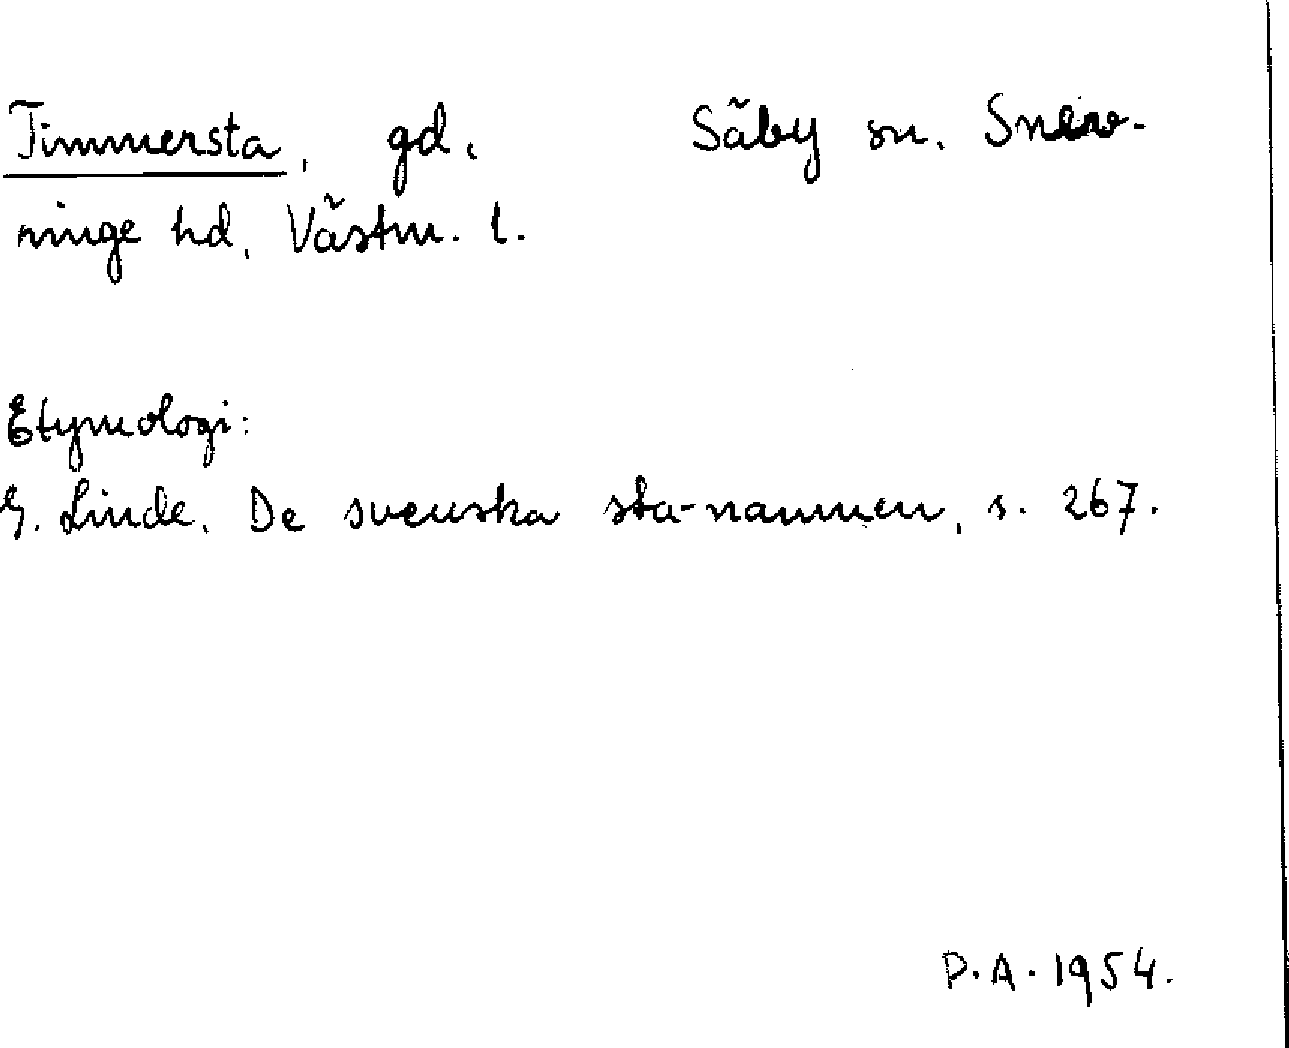 Timmersta, gd. Säby sn. Snev-
ringe hd, Västm. l.
Etymologi:
G. Linde. De svenska sta-namnen, s. 267.
P.A. 1954.